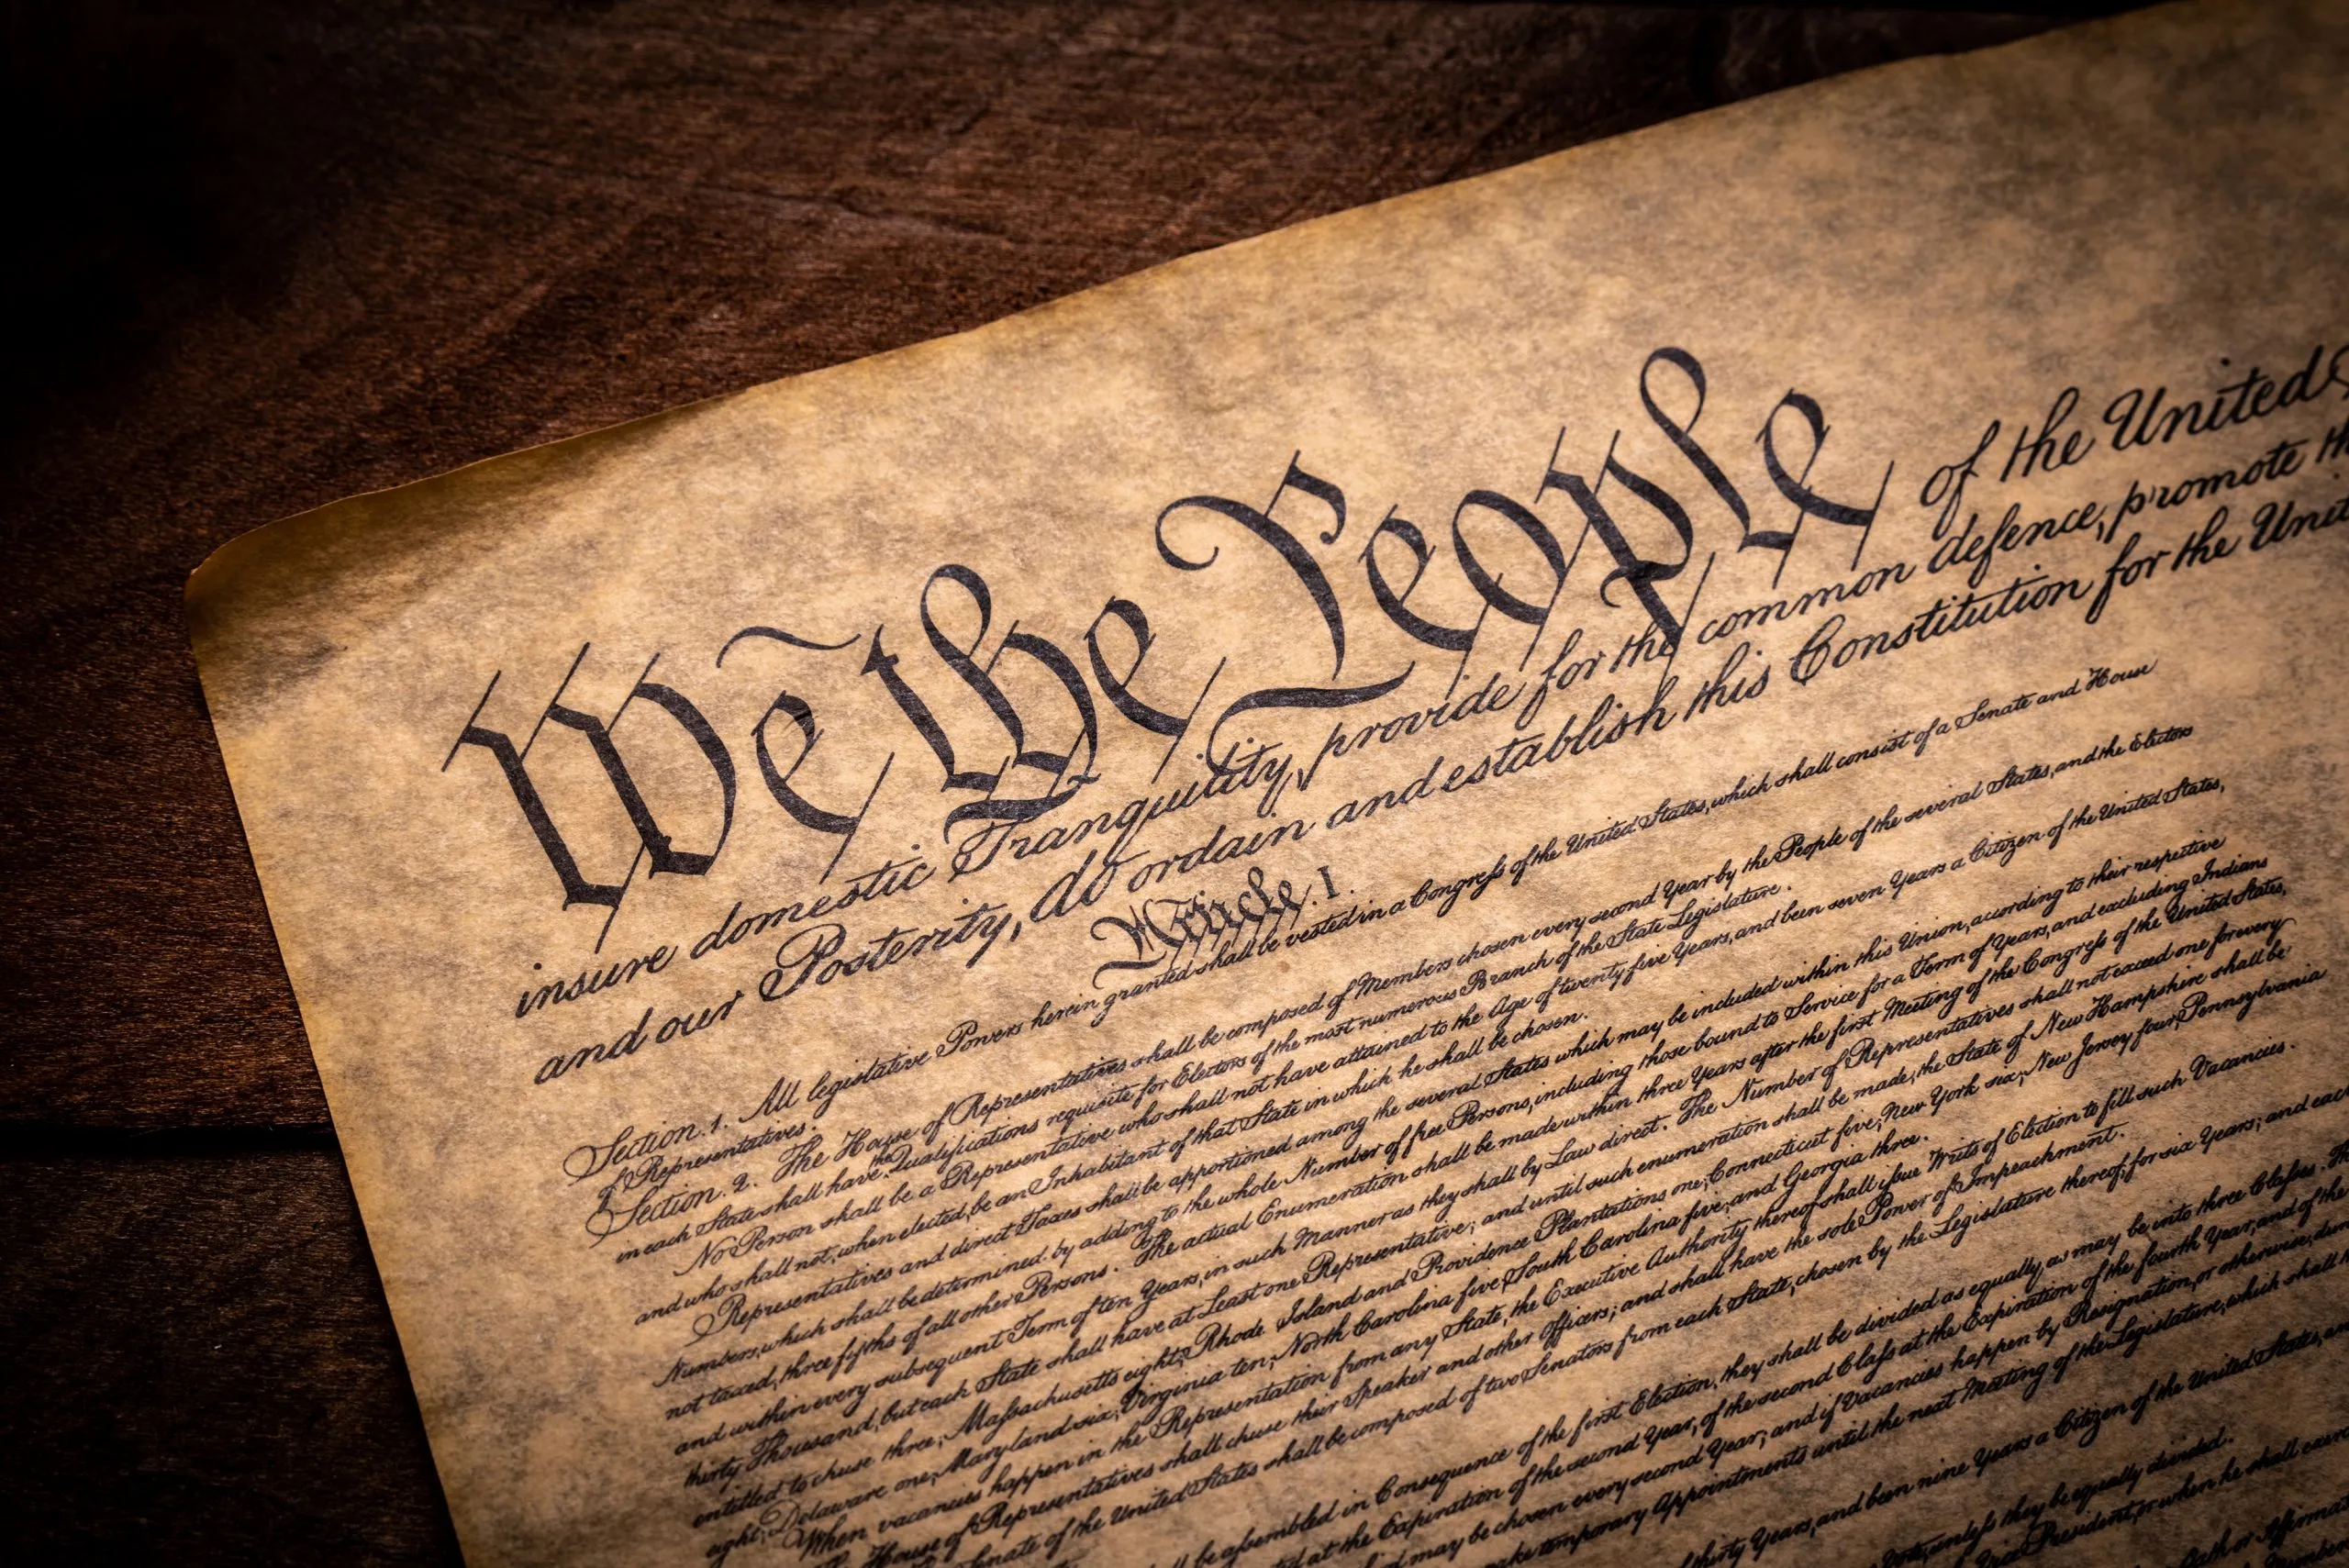 We the People of the United
insure domestic Tranquility, provide for the common defence, promote
and our Posterity, do ordain and establish this Constitution for the
Article. I.
Section. 1. All legislative Powers herein granted shall be vested in a Congress of the United States, which shall consist of a Senate and House
of Representatives.
Section. 2. The House of Representatives shall be composed of Members chosen every second Year by the People of the several States, and the Electors
in each State shall have the Qualifications requisite for Electors of the most numerous Branch of the State Legislature.
No Person shall be a Representative who shall not have attained to the Age of twenty five Years, and been seven Years a Citizen of the United States,
and who shall not, when elected, be an Inhabitant of that State in which he shall be chosen.
Representatives and direct Taxes shall be apportioned among the several States which may be included within this Union, according to their respective
Numbers, which shall be determined by adding to the whole Number of free Persons, including those bound to Service for a Term of Years, and excluding Indians
not taxed, three fifths of all other Persons. The actual Enumeration shall be made within three Years after the first Meeting of the Congress of the United States,
and within every subsequent Term of ten Years, in such Manner as they shall by Law direct. The Number of Representatives shall not exceed one for every
thirty Thousand, but each State shall have at Least one Representative; and until such enumeration shall be made, the State of New Hampshire shall be
entitled to chuse three, Massachusetts eight, Rhode Island and Providence Plantations one, Connecticut five, New York six, New Jersey four, Pennsylvania
eight, Delaware one, Maryland six, Virginia ten, North Carolina five, South Carolina five, and Georgia three.
When vacancies happen in the Representation from any State, the Executive Authority thereof shall issue Writs of Election to fill such Vacancies.
The House of Representatives shall chuse their Speaker and other Officers; and shall have the sole Power of Impeachment.
Senate of the United States shall be composed of two Senators from each State, chosen by the Legislature thereof, for six Years; and each
be assembled in Consequence of the first Election, they shall be divided as equally as may be into three Classes. The
at the Expiration of the second Year, of the second Class at the Expiration of the fourth Year, and of the
may be chosen every second Year; and if Vacancies happen by Resignation, or otherwise,
make temporary Appointments until the next Meeting of the Legislature, which shall
thirty Years, and been nine Years a Citizen of the United States,
Vote, unless they be equally divided.
President, or when he shall
Oath or